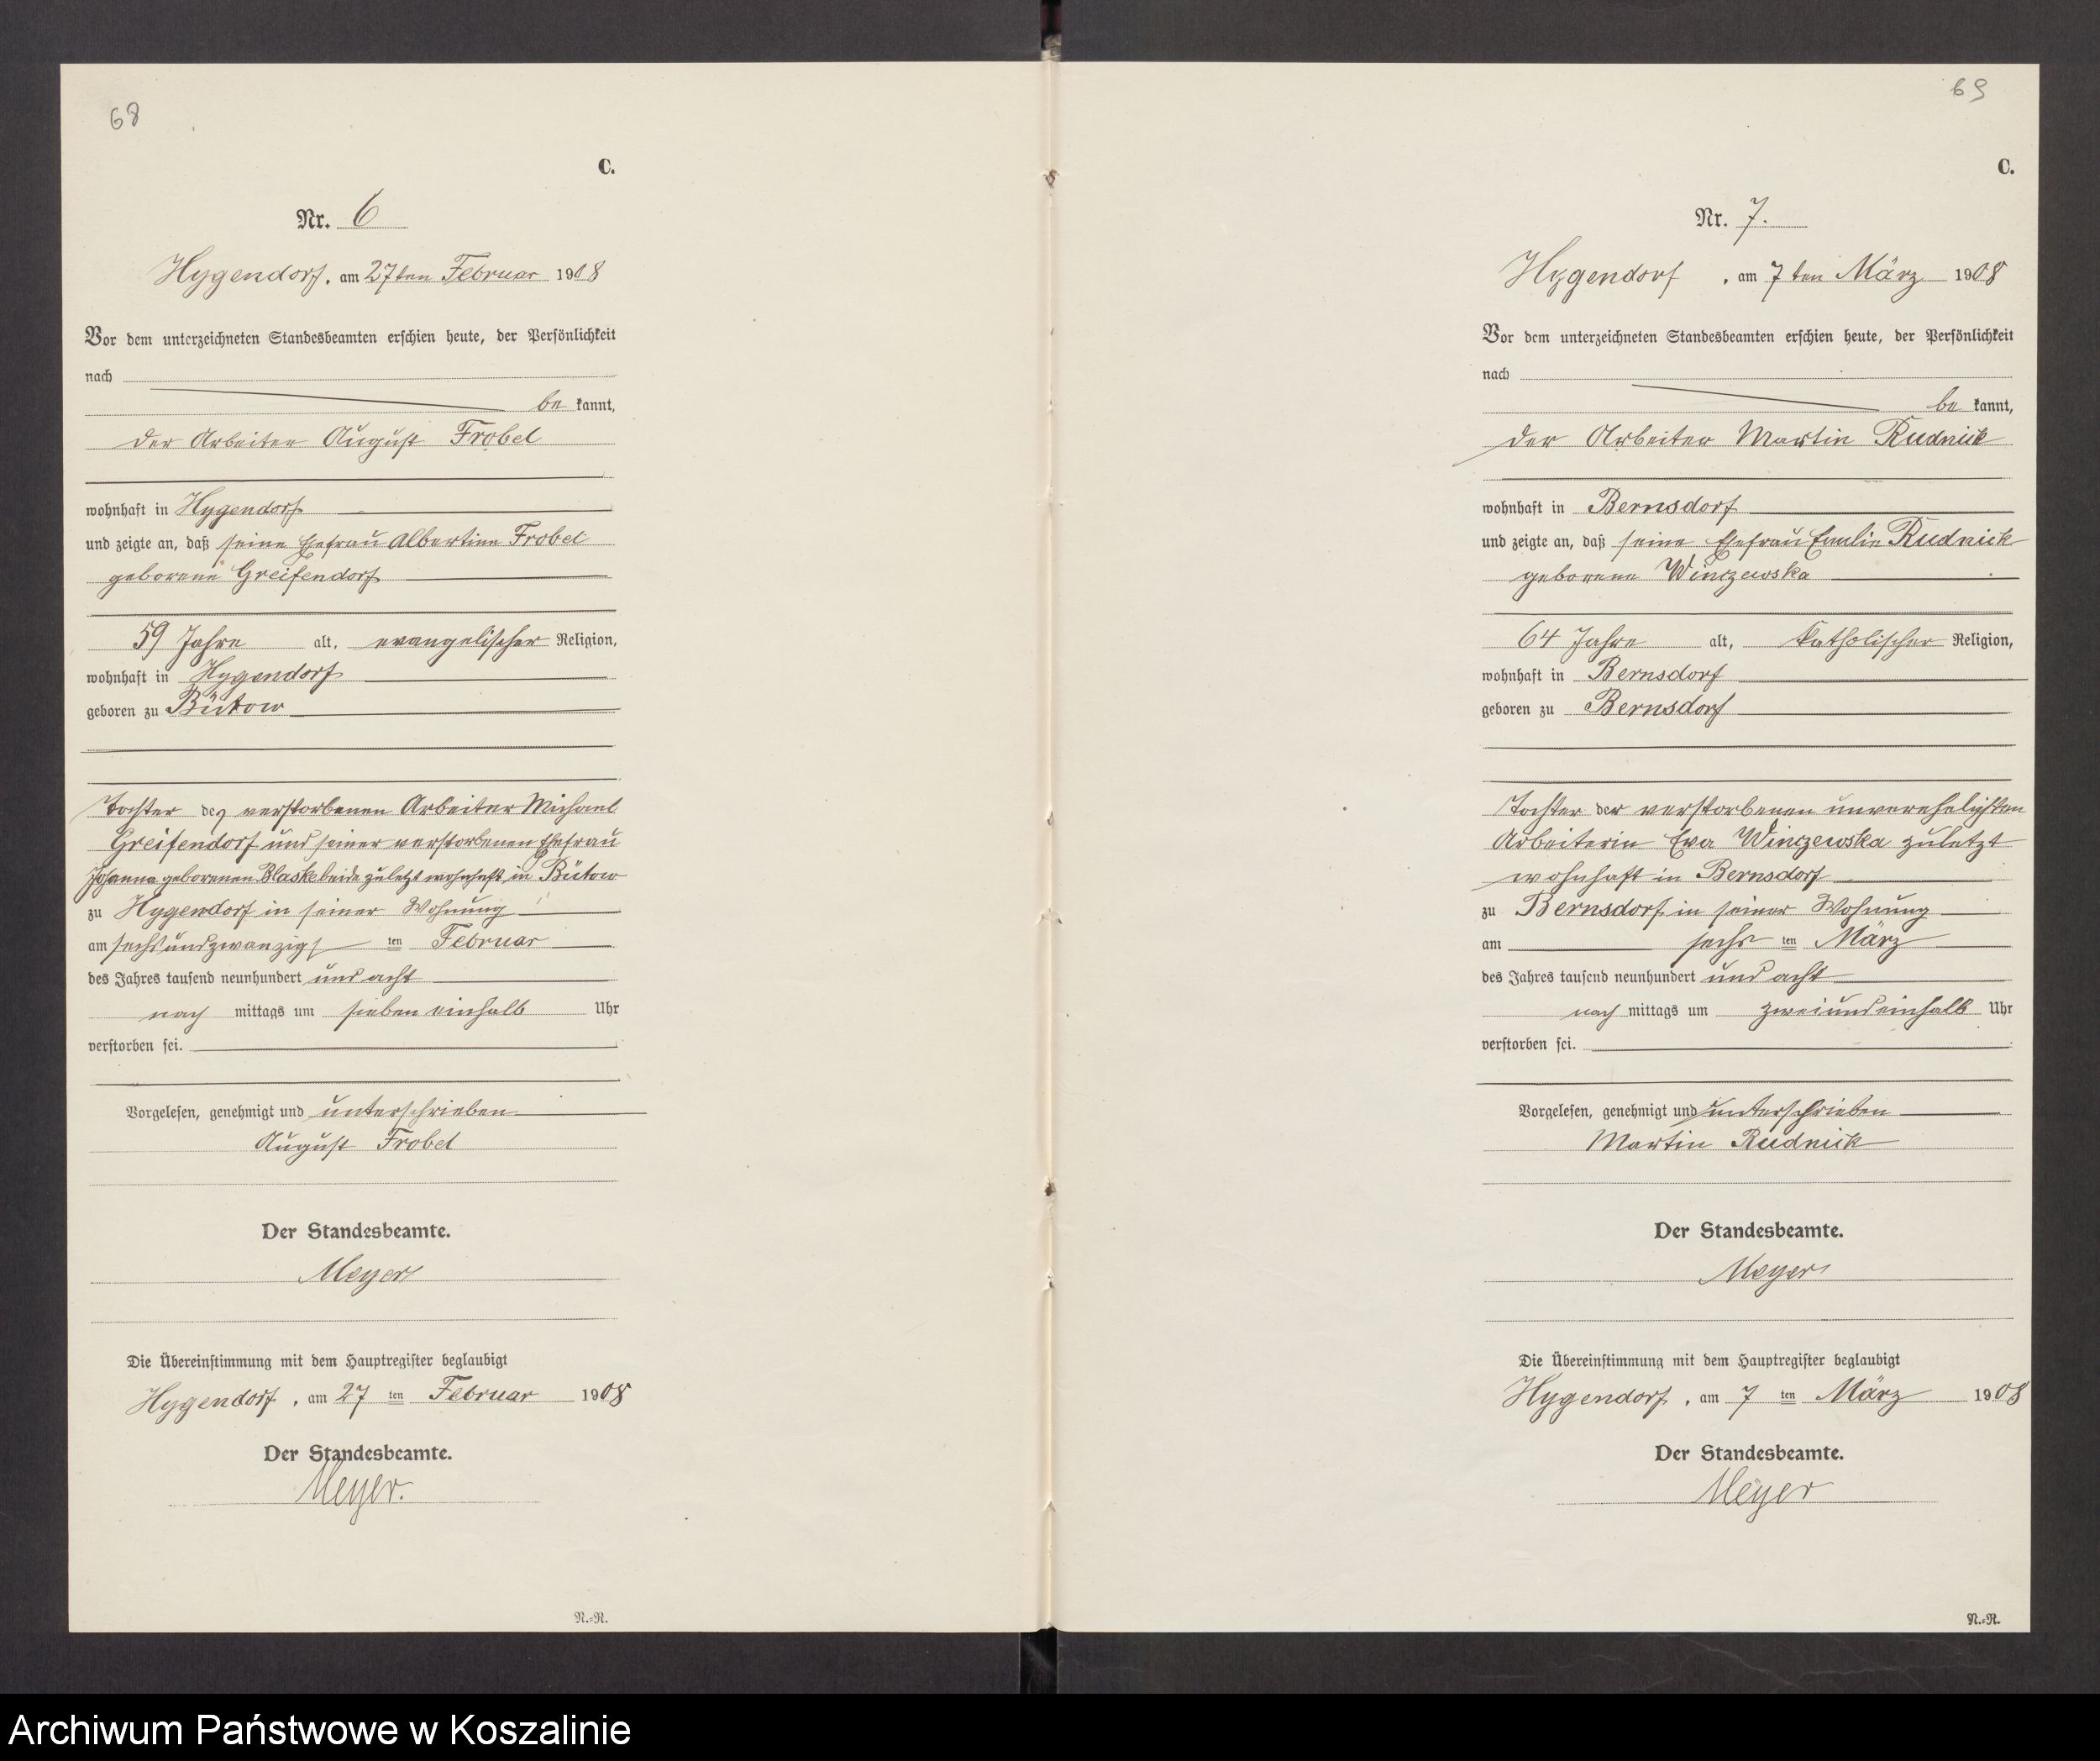 68
C.
Nr. 6
Hygendorf, am 27ten Februar 1908
Vor dem unterzeichneten Standesbeamten erschien heute, der Persönlichkeit
nach
be kannt,
der Arbeiter August Frobel
wohnhaft in Hygendorf
und zeigte an, daß seine Ehefrau Albertine Frobel
geborene Greifendorf
59 Jahre alt, evangelischer Religion,
wohnhaft in Hygendorf
geboren zu Bütow
Tochter des verstorbenen Arbeiter Michael
Greifendorf und seiner verstorbenen Ehefrau
Johanna geborenen Blaske beide zuletzt wohnhaft in Bütow
zu Hygendorf in seiner Wohnung
am sechsundzwanzigs ten Februar
des Jahres tausend neunhundert und acht
nach mittags um sieben einhalb Uhr
verstorben sei.
Vorgelesen, genehmigt und unterschrieben
August Frobel
Der Standesbeamte.
Meyer
Die Übereinstimmung mit dem Hauptregister beglaubigt
Hygendorf, am 27 ten Februar 1908
Der Standesbeamte.
Meyer.
N.-R.
69
C.
Nr. 7.
Hygendorf, am 7ten März 1908
Vor dem unterzeichneten Standesbeamten erschien heute, der Persönlichkeit
nach
be kannt,
der Arbeiter Martin Rudnick
wohnhaft in Bernsdorf
und zeigte an, daß seine Ehefrau Emilie Rudnick
geborene Winczewska
64 Jahre alt, katholischer Religion,
wohnhaft in Bernsdorf
geboren zu Bernsdorf
Tochter der verstorbenen unverehelichten
Arbeiterin Eva Winczewska zuletzt
wohnhaft in Bernsdorf
zu Bernsdorf in seiner Wohnung
am sechs ten März
des Jahres tausend neunhundert und acht
nach mittags um zweiundeinhalb Uhr
verstorben sei.
Vorgelesen, genehmigt und unterschrieben
Martin Rudnick
Der Standesbeamte.
Meyer
Die Übereinstimmung mit dem Hauptregister beglaubigt
Hygendorf, am 7 ten März 1908
Der Standesbeamte.
Meyer
N.-R.
Archiwum Państwowe w Koszalinie